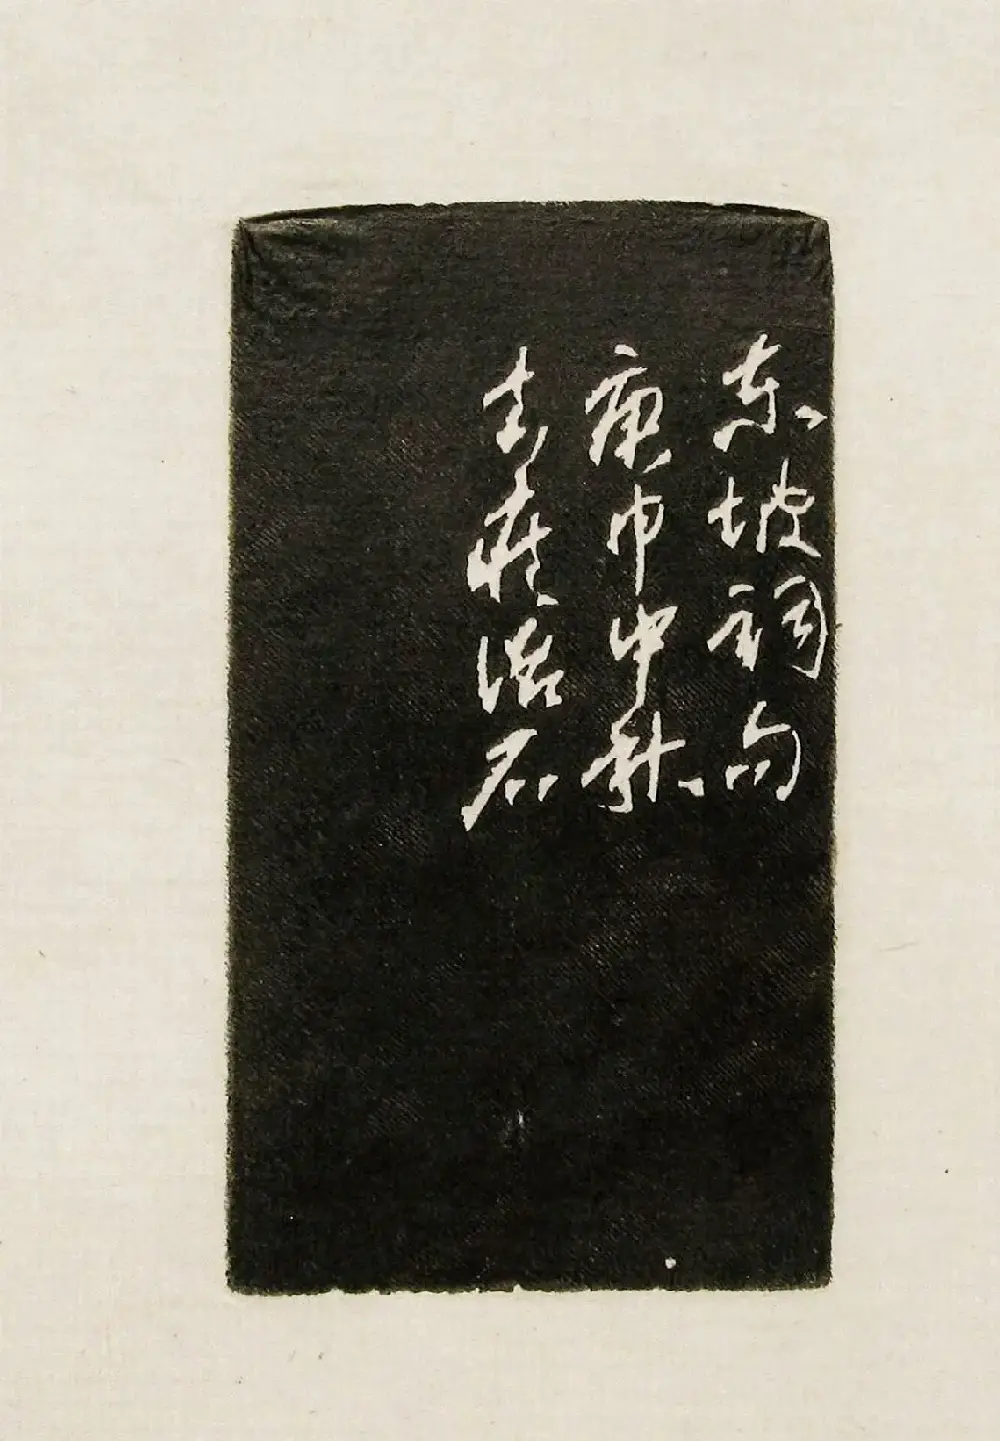 东坡词句
庚申中秋
去疾治石